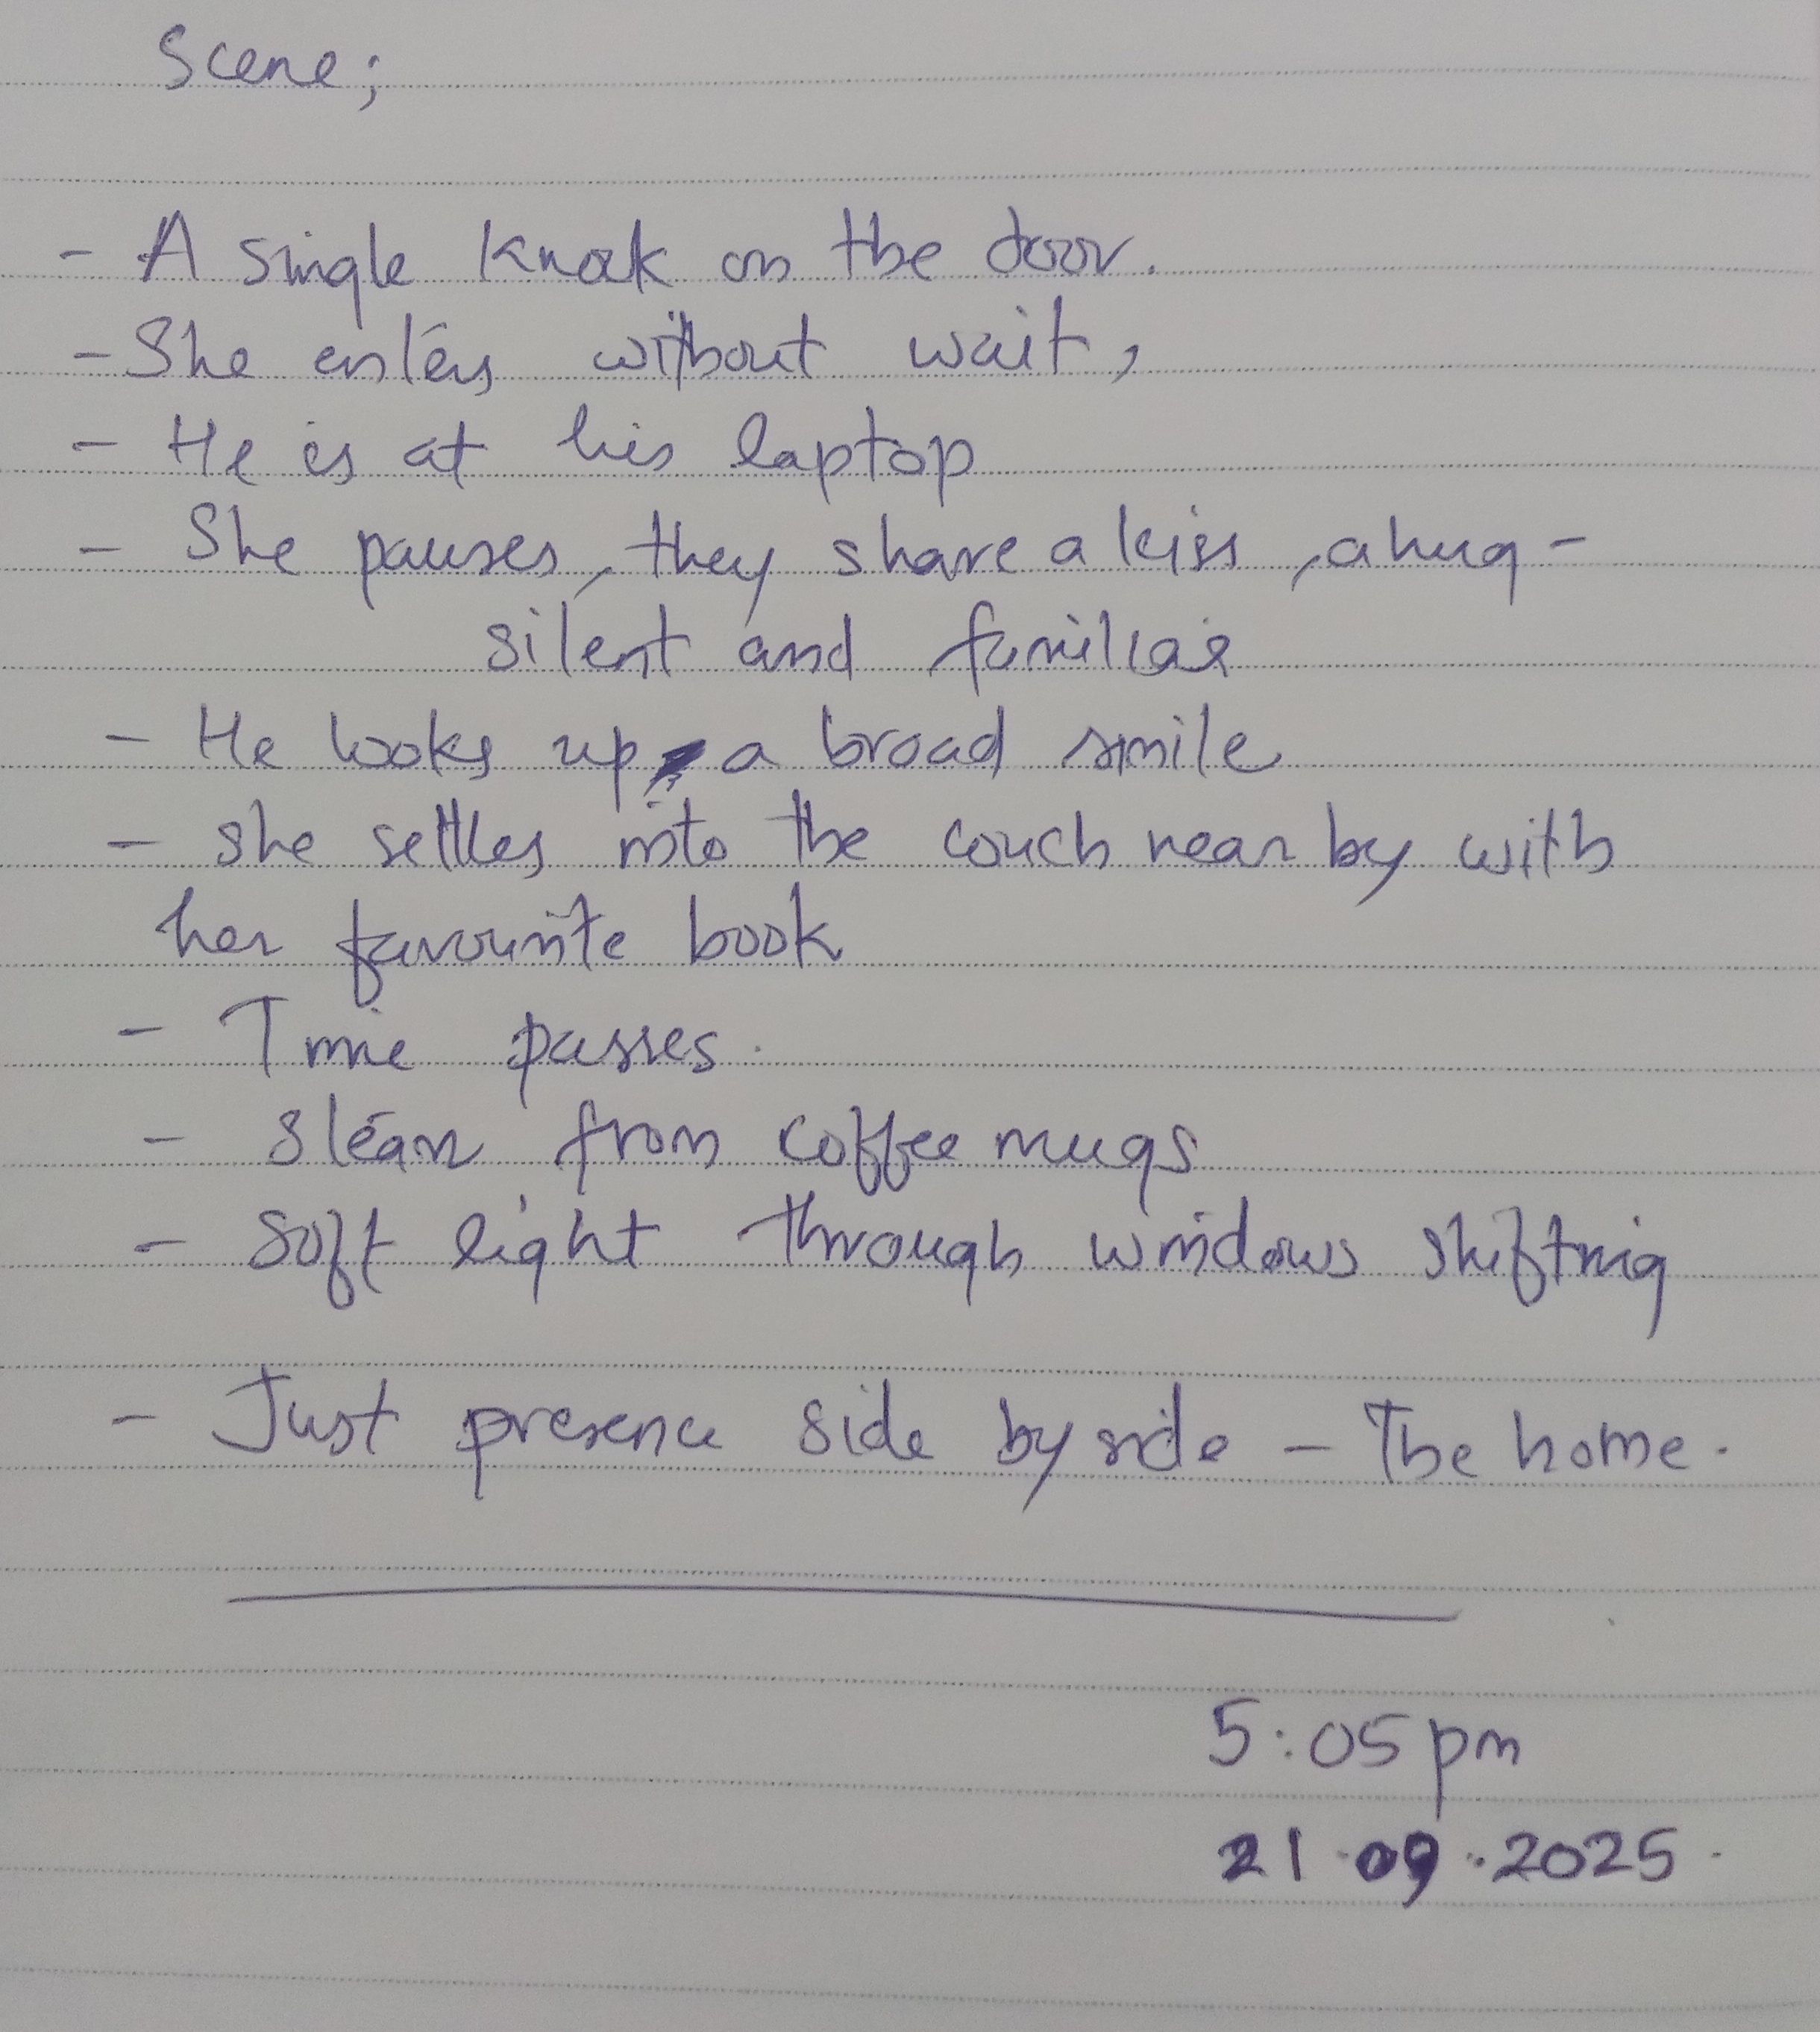 Scene;
- A single knock on the door.
- She enters without wait,
- He is at his laptop
- She pauses, they share a kiss, a hug -
silent and familiar
- He looks up, a broad smile
- she settles into the couch near by with
her favourite book
- Time passes.
- Steam from coffee mugs
- Soft light through windows shifting
- Just presence side by side - The home.
5:05 pm
21.09.2025.